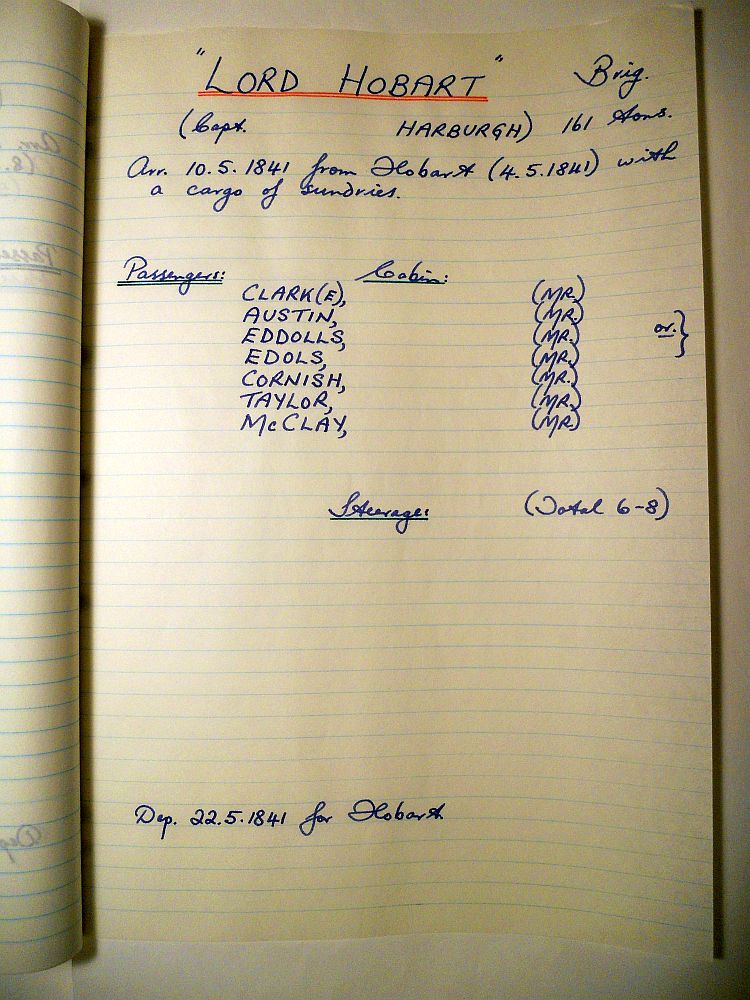 "LORD HOBART" Brig.
(Capt. HARBURGH) 161 tons.
Arr. 10.5.1841 from Hobart (4.5.1841) with
a cargo of sundries.
Passengers: Cabin:
CLARK(E), (MR.)
AUSTIN, (MR.)
EDDOLLS, (MR.) or. }
EDOLS, (MR.)
CORNISH, (MR.)
TAYLOR, (MR.)
McCLAY, (MR.)
Steerage: (Total 6-8)
Dep. 22.5.1841 for Hobart